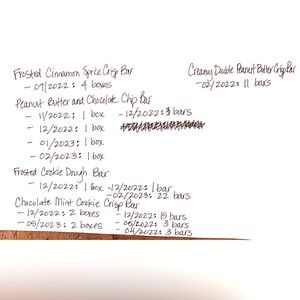 Frosted Cinnamon Spice Crisp Bar
- 09/2022: 4 boxes
Peanut Butter and Chocolate Chip Bar
- 11/2022: 1 box - 12/2022: 3 bars
- 12/2022: 1 box
- 01/2023: 1 box
- 02/2023: 1 box
Frosted Cookie Dough Bar
- 12/2022: 1 box - 12/2022: 1 bar
- 02/2023: 22 bars
Chocolate Mint Cookie Crisp Bar
- 12/2022: 2 boxes - 12/2022: 15 bars
- 05/2023: 2 boxes - 05/2022: 3 bars
- 04/2022: 3 bars
Creamy Double Peanut Butter Crisp Bar
- 02/2022: 11 bars